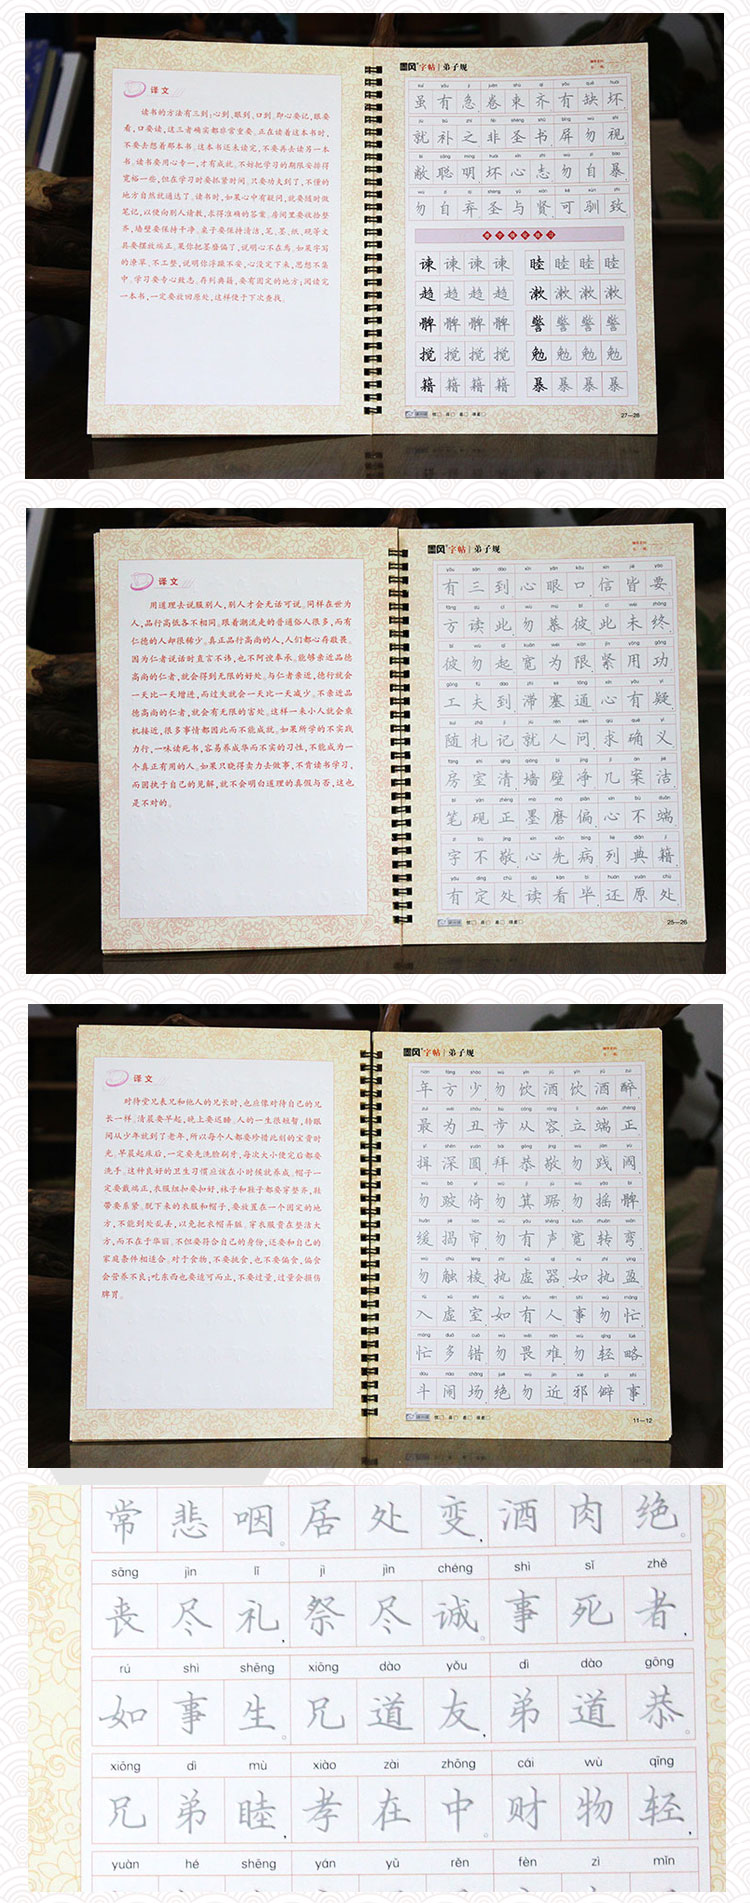 译文
读书的方法有三到：心到、眼到、口到。即心要记，眼要
看，口要读，这三者确实都非常重要。正在读着这本书时，
不要去想着那本书。这本书还未读完，不要再去读另一本
书。读书要用心专一，才有成就。不妨把学习的期限安排得
宽裕一些，但在学习时要抓紧时间。只要功夫到了，不懂的
地方自然就通达了。读书时，如果心中有疑问，就要随时做
笔记，以便向别人请教，求得准确的答案。房间里要收拾整
齐，墙壁要保持干净。桌子要保持清洁，笔、墨、纸、砚等文
具要摆放端正。如果你把墨磨偏了，说明心不在焉。如果字写
的潦草、不工整，说明你浮躁不安，心没定下来，思想不集
中。学习要专心致志。存列典籍，要有固定的地方；阅读完
一本书，一定要放回原处，这样便于下次查找。
墨风字帖 弟子规
suī yǒu jí juàn shù qí yǒu quē huài
虽有急卷束齐有缺坏
jiù bǔ zhī fēi shèng shū bǐng wù shì
就补之非圣书屏勿视
bì cōng míng huài xīn zhì wù zì bào
敝聪明坏心志勿自暴
wù zì qì shèng yǔ xián kě xùn zhì
勿自弃圣与贤可驯致
谏谏谏谏 睦睦睦睦
趋趋趋趋 漱漱漱漱
髀髀髀髀 警警警警
搅搅搅搅 勉勉勉勉
籍籍籍籍 暴暴暴暴
27—28
译文
用道理去说服别人，别人才会无话可说。同样在世为
人，品行高低各不相同。跟着潮流走的普通俗人很多，而有
仁德的人却很稀少。真正品行高尚的人，人们都心存敬畏。
因为仁者说话时直言不讳，也不阿谀奉承。能够亲近品德
高尚的仁者，就会得到无限的好处。与仁者亲近，德行就会
一天比一天增进，而过失就会一天比一天减少。不亲近品
德高尚的仁者，就会有无限的害处。这样一来小人就会乘
机接近，很多事情都因此而不能成就。如果所学的不实践
力行，一味读死书，容易养成华而不实的习性，不能成为一
个真正有用的人。如果只晓得卖力去做事，不肯读书学习，
而固执于自己的见解，就不会明白道理的真假与否，这也
是不对的。
墨风字帖 弟子规
yǒu sān dào xīn yǎn kǒu xìn jiē yào
有三到心眼口信皆要
fāng dú cǐ wù mù bǐ cǐ wèi zhōng
方读此勿慕彼此未终
bǐ wù qǐ kuān wéi xiàn jǐn yòng gōng
彼勿起宽为限紧用功
gōng fū dào zhì sè tōng xīn yǒu yí
工夫到滞塞通心有疑
suí zhá jì jiù rén wèn qiú què yì
随札记就人问求确义
fáng shì qīng qiáng bì jìng jī àn jié
房室清墙壁净几案洁
bǐ yàn zhèng mò mó piān xīn bù duān
笔砚正墨磨偏心不端
zì bù jìng xīn xiān bìng liè diǎn jí
字不敬心先病列典籍
yǒu dìng chù dú kàn bì huán yuán chù
有定处读看毕还原处
25—26
译文
对待堂兄表兄和他人的兄长时，也应像对待自己的兄
长一样。清晨要早起，晚上要迟睡。人的一生很短暂，转眼
间从少年就到了老年，所以每个人都要珍惜此刻的宝贵时
光。早晨起床后，一定要先洗脸刷牙，每次大小便完后都要
洗手。这种良好的卫生习惯应该在小时候就养成。帽子一
定要戴端正，衣服纽扣要扣好，袜子和鞋子都要穿整齐，鞋
带要系紧。脱下来的衣服和帽子，要放置在一个固定的地
方，不能到处乱丢，以免把衣帽弄脏。穿衣服贵在整洁大
方，而不在于华丽。不但要符合自己的身份，还要和自己的
家庭条件相适合。对于食物，不要挑食，也不要偏食，偏食
会营养不良；吃东西也要适可而止，不要过量，过量会损伤
脾胃。
墨风字帖 弟子规
nián fāng shào wù yǐn jiǔ yǐn jiǔ zuì
年方少勿饮酒饮酒醉
zuì wéi chǒu bù cóng róng lì duān zhèng
最为丑步从容立端正
yī shēn yuán bài gōng jìng wù jiàn yù
揖深圆拜恭敬勿践阈
wù bǒ yǐ wù jī jù wù yáo bì
勿跛倚勿箕踞勿摇髀
huǎn jiē lián wù yǒu shēng kuān zhuǎn wān
缓揭帘勿有声宽转弯
wù chù léng zhí xū qì rú zhí yíng
勿触棱执虚器如执盈
rù xū shì rú yǒu rén shì wù máng
入虚室如有人事勿忙
máng duō cuò wù wèi nán wù qīng lüè
忙多错勿畏难勿轻略
dòu nào chǎng jué wù jìn xié pì shì
斗闹场绝勿近邪僻事
11—12
常悲咽居处变，酒肉绝。
sāng jìn lǐ jì jìn chéng shì sǐ zhě
丧尽礼，祭尽诚。事死者，
rú shì shēng xiōng dào yǒu dì dào gōng
如事生。兄道友，弟道恭。
xiōng dì mù xiào zài zhōng cái wù qīng
兄弟睦，孝在中。财物轻，
yuàn hé shēng yán yǔ rěn fèn zì mǐn